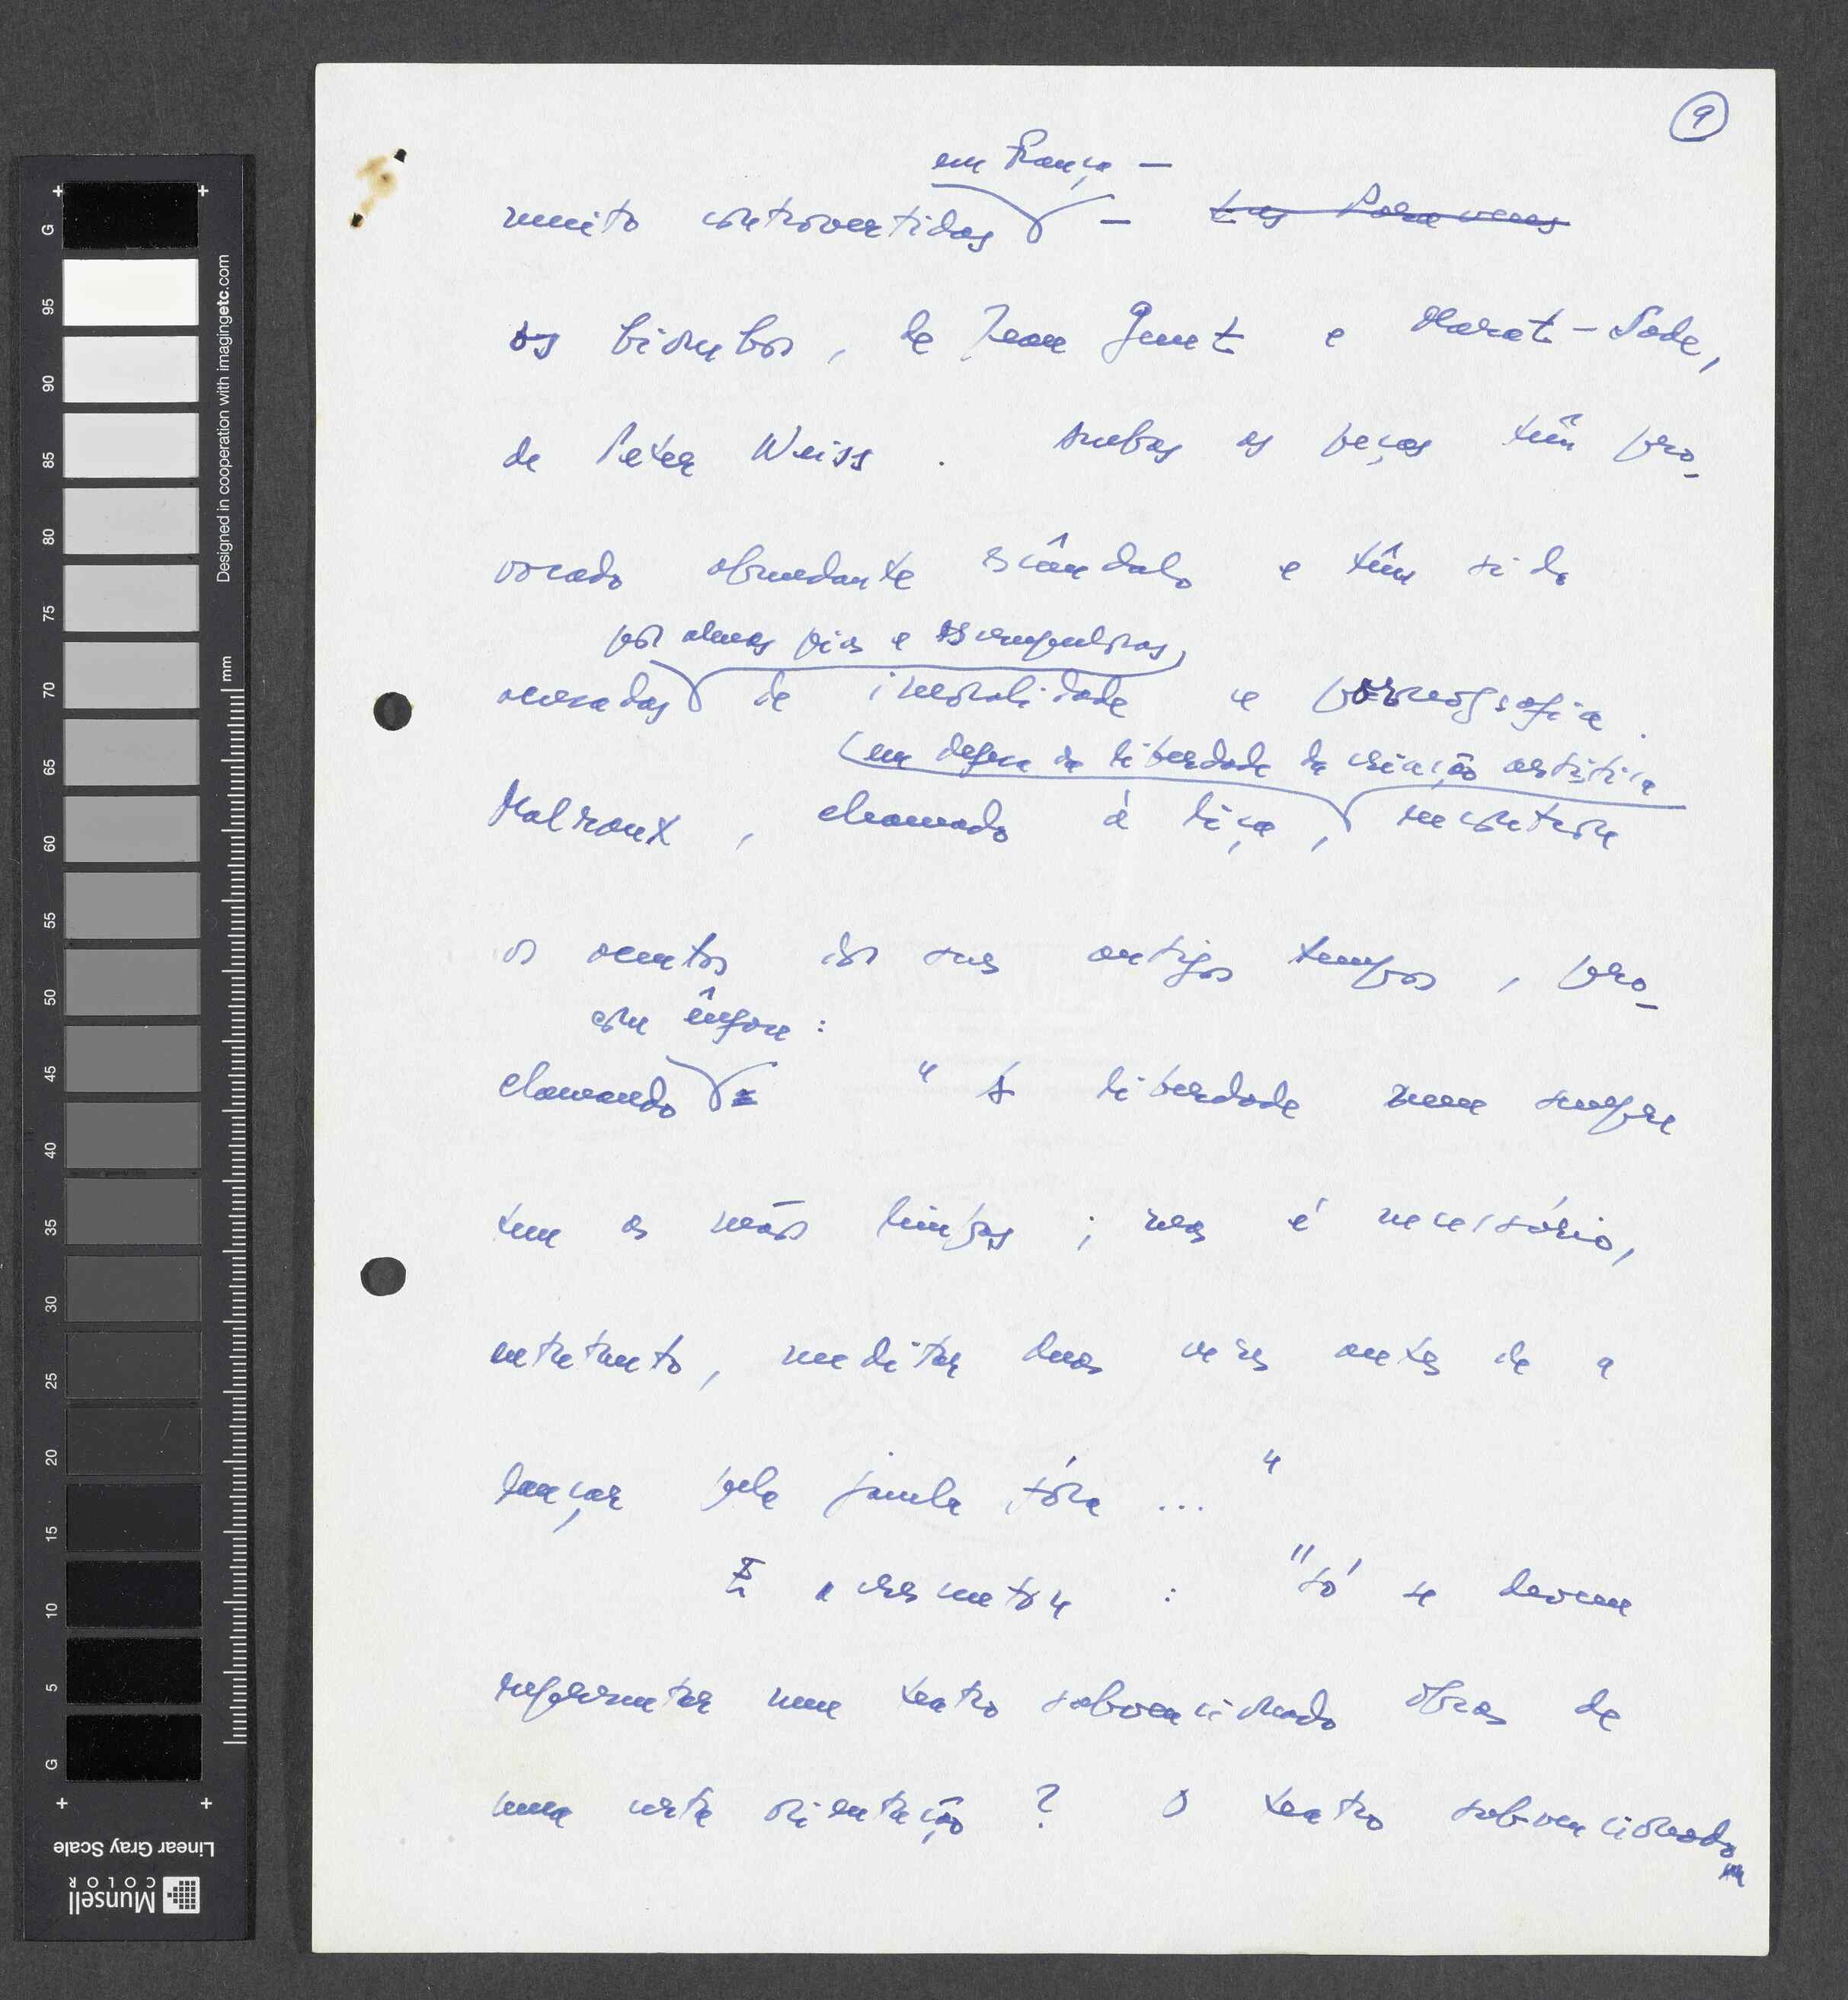 9
em França —
muito controvertidas — Les Paravents
os biombos, de Jean Genet e Marat-Sade,
de Peter Weiss. Ambas as peças têm pro-
vocado abundante escândalo e têm sido
por almas pias e escrupulosas,
acusadas de imoralidade e pornografia.
em defesa da liberdade da criação artística
Malraux, chamado à liça, reencontrou
os acentos dos seus antigos tempos, pro-
com ênfase:
clamando "A liberdade nem sempre
tem as mãos limpas; mas é necessário,
entretanto, meditar duas vezes antes de a
lançar pela janela fóra ..."
E acrescentou: "Só se devem
representar num teatro subvencionado obras de
uma certa orientação? O teatro subvencionado
G
95
90
85
80
75
70
65
60
55
50
45
40
35
30
25
20
15
10
5
G
Designed in cooperation with imagingetc.com
mm
Linear Gray Scale
Munsell
COLOR